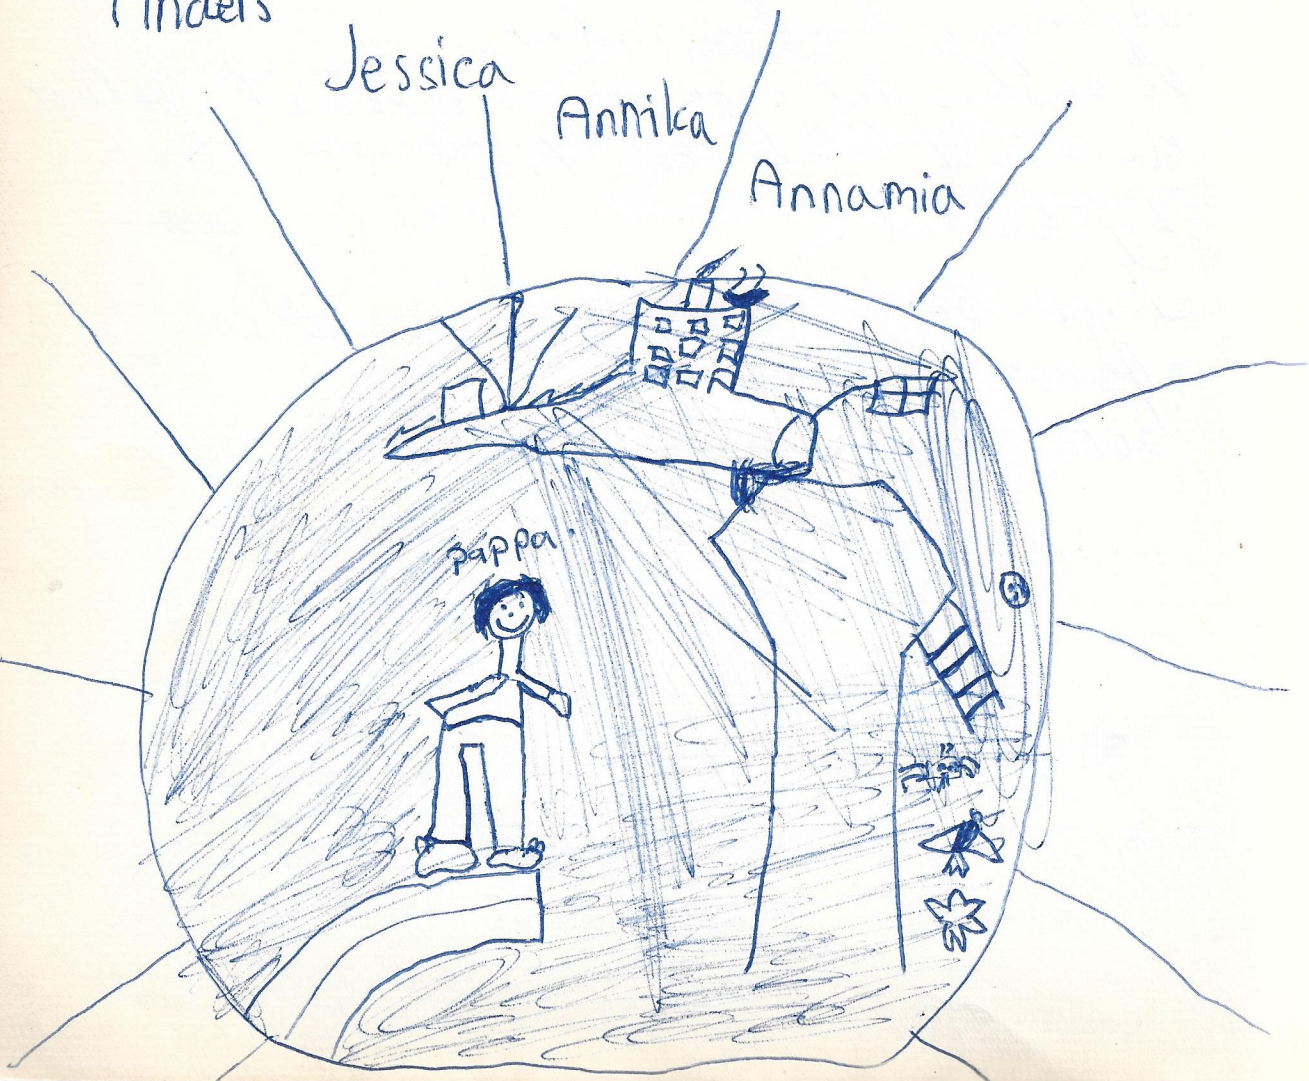 Anders
Jessica
Annika
Annamia
pappa